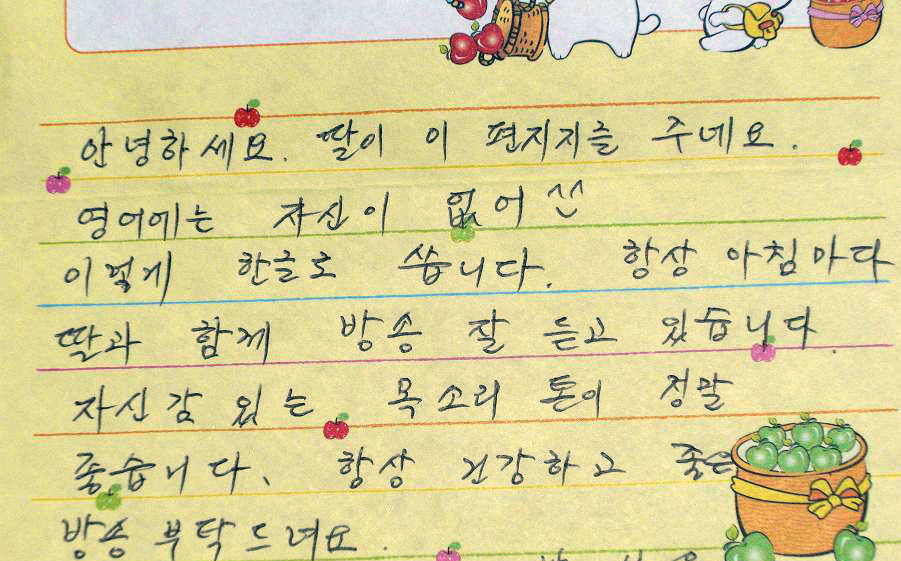 안녕하세요. 딸이 이 편지지를 주네요.
영어에는 자신이 없어 ^^
이렇게 한글로 씁니다. 항상 아침마다
딸과 함께 방송 잘 듣고 있습니다.
자신감 있는 목소리 톤이 정말
좋습니다. 항상 건강하고 좋은
방송 부탁드려요.